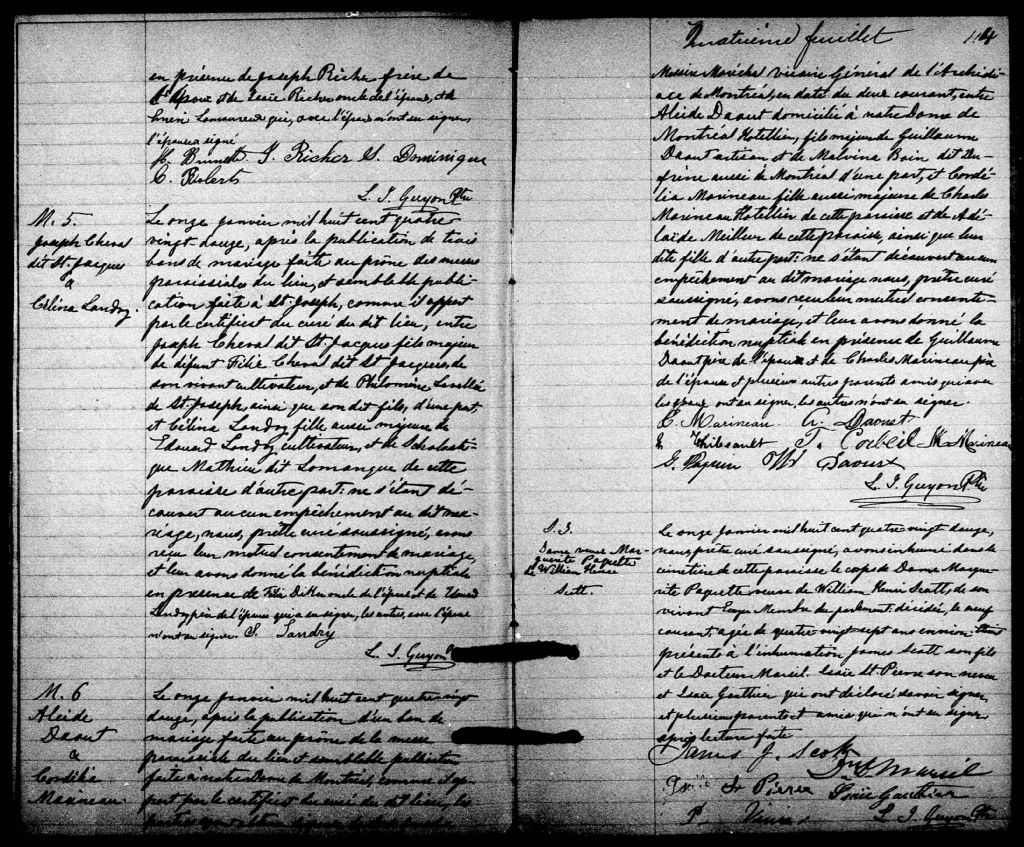 en présence de Joseph Richer frère de
l'époux et de Isaïe Richer oncle de l'époux, et de
Lamoureux qui, avec l'époux n'ont su signer,
l'épouse a signé
H. Brunett J. Richer S. Dominique
C. Roberts
L. I. Guyon Ptre
M. 5.
Joseph Cheval
dit St. Jacques
&
Célina Landry.
Le onze janvier mil huit cent quatre
vingt-douze, après la publication de trois
bans de mariage faite au prône des messes
paroissiales du lieu, et semblable publi-
cation faite à St. Joseph, comme il appert
par le certificat du curé du dit lieu, entre
Joseph Cheval dit St. Jacques fils majeur
de défunt Félix Cheval dit St Jacques, de
son vivant cultivateur, et de Philomène Lavallé
de St. Joseph, ainsi que son dit fils, d'une part,
et Célina Landry fille aussi majeure de
Edouard Landry cultivateur, et de Scholasti-
que Mathieu dit Lamangue de cette
paroisse d'autre part: ne s'étant dé-
couvert aucun empêchement au dit ma-
riage, nous, prêtre curé soussigné, avons
reçu leur mutuel consentement de mariage,
et leur avons donné la bénédiction nuptiale
en présence de Félix oncle de l'époux et de Edouard
Landry père de l'épouse qui a su signer, les autres, avec l'épouse
n'ont su signer. E. Landry
L. I. Guyon Ptre
M. 6
Alcide
Daout
&
Cordélia
Marineau.
Le onze janvier mil huit cent quatre vingt
douze, après la publication d'un ban de
mariage faite au prône de la messe
paroissiale du lieu et semblable publication
faite à Notre Dame de Montréal, comme il ap-
pert par le certificat du curé du dit lieu, les
Quatrième feuillet
114
Messire Maréchal vicaire Général de l'Archidio-
cèse de Montréal, en date du deux courant, entre
Alcide Daout domicilié à Notre Dame de
Montréal Hotellier, fils majeur de Guillaume
Daout artisan et de Malvina Boin dit Du-
frène aussi de Montréal d'une part, et Cordé-
lia Marineau fille aussi majeure de Charles
Marineau Hotellier de cette paroisse et de Adé-
laïde Meilleur de cette paroisse, ainsi que leur
dite fille d'autre part: ne s'étant découvert aucun
empêchement au dit mariage nous, prêtre curé
soussigné, avons reçu leur mutuel consente-
ment de mariage, et leur avons donné la
bénédiction nuptiale en présence de Guillaume
Daout père de l'époux et de Charles Marineau père
de l'épouse et plusieurs autres parents amis qui avec
les époux ont su signer, les autres n'ont su signer.
C. Marineau. A. Daoust
Thibeault T. Corbeil M. Marineau
G. Paquin W Daoust
L. I. Guyon Ptre
S. 3.
Dame veuve Mar-
guerite Paquette
de William Henri
Scott.
Le onze janvier mil huit cent quatre vingt douze,
nous prêtre curé soussigné, avons inhumé dans le
cimetière de cette paroisse le corps de Dame Margue-
rite Paquette veuve de William Henri Scott, de son
vivant Ecuyer Membre du parlement, décédée, le neuf
courant, agée de quatre vingt sept ans environ. Etaient
présents à l'inhumation James Scott son fils
et le Docteur Marsil. Isaïe St. Pierre son neveu
et Isaïe Gauthier qui ont déclaré savoir signer
et plusieurs parents et amis qui n'ont su signer
après lecture faite
James J. Scott
Dr. Marsil
Isaïe St Pierre Isaïe Gauthier
L. I. Guyon Ptre